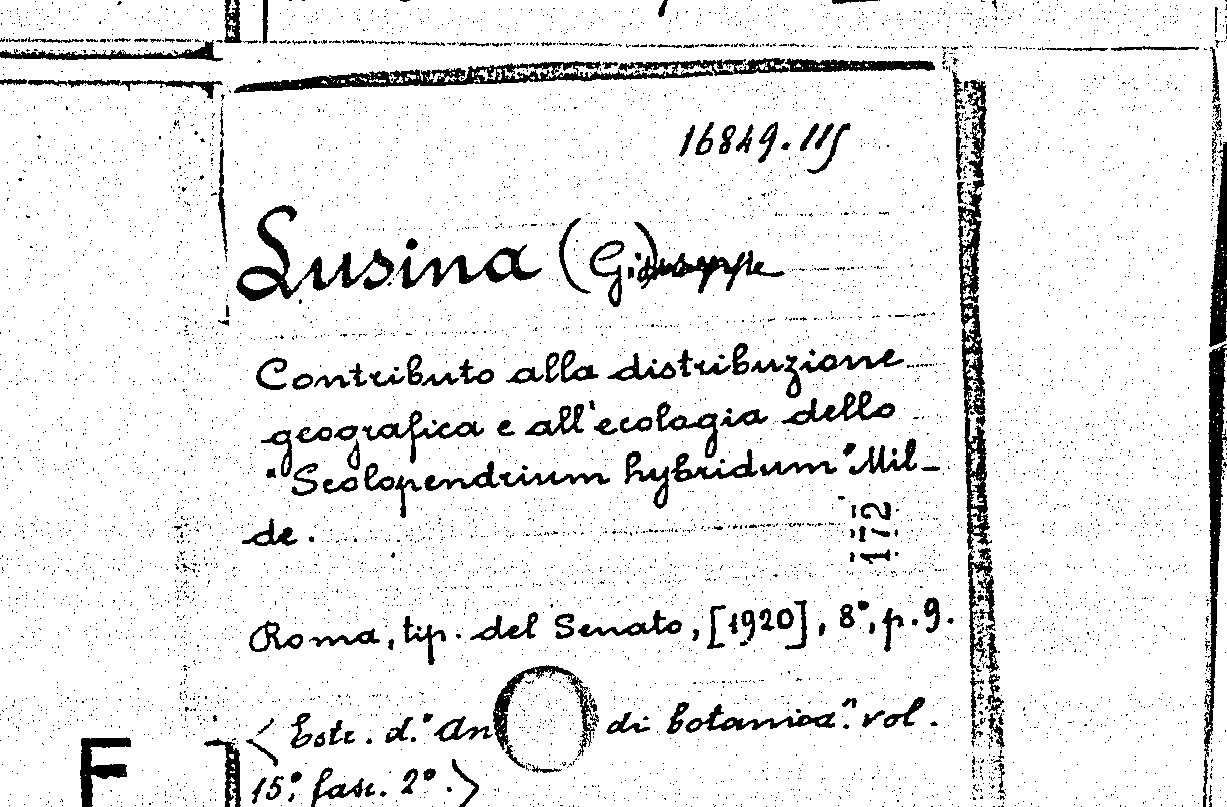 16849.115
Lusina (Giuseppe)
Contributo alla distribuzione
geografica e all'ecologia dello
"Scolopendrium hybridum" Mil-
de.
172
Roma, tip. del Senato, [1920], 8°, p. 9.
< Estr. d. "An di botanica". vol.
15.° fasc. 2°. >
F